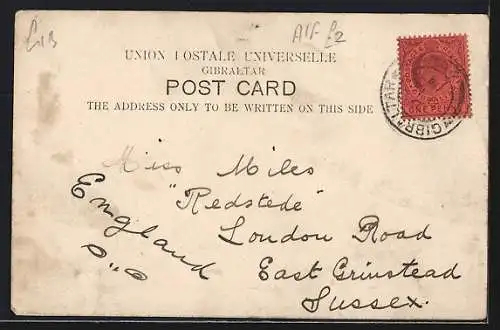 £13
A1F £2
UNION POSTALE UNIVERSELLE
GIBRALTAR
POST CARD
THE ADDRESS ONLY TO BE WRITTEN ON THIS SIDE
GIBRALTAR
Miss Miles
"Redstede"
London Road
East Grinstead
Sussex.
England